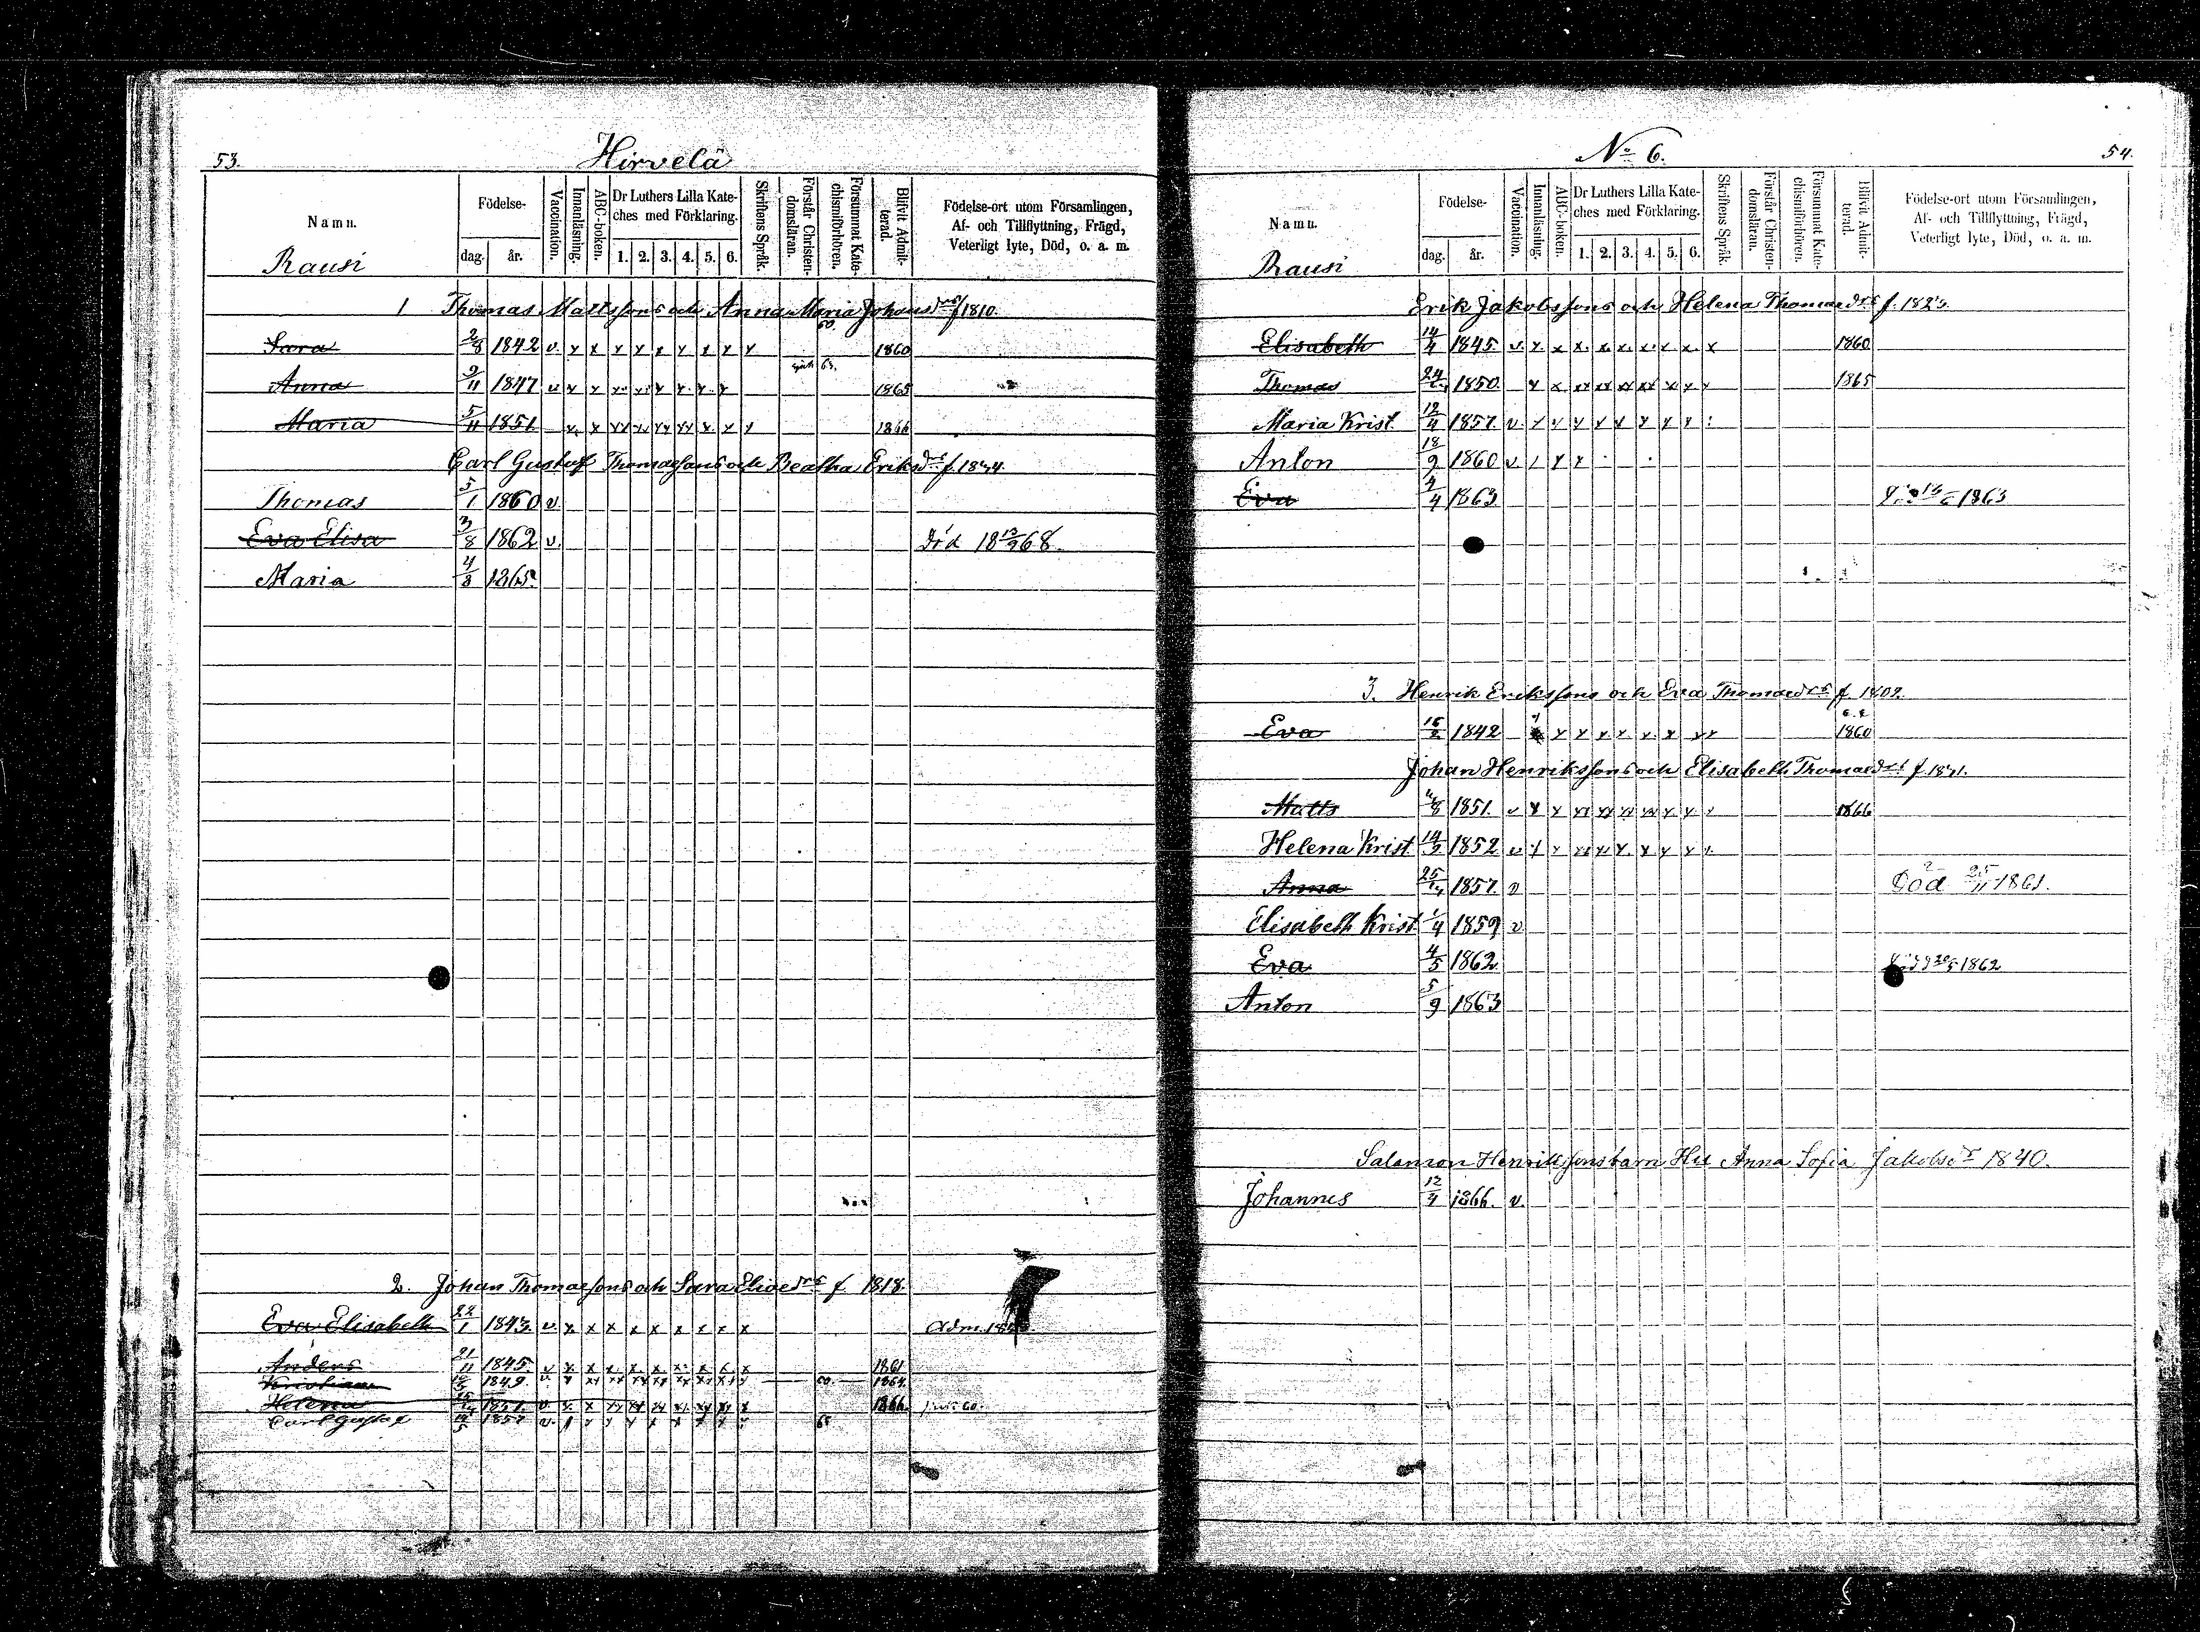 53.
Hirvelä
Namn.
Födelse-
dag.
år.
Vaccination.
Innanläsning.
ABC-boken.
Dr Luthers Lilla Kate-
ches med Förklaring.
1. 2. 3. 4. 5. 6.
Skriftens Språk.
Förstår Christen-
domsläran.
Försummat Kate-
chismiförhören.
Blifvit Admit-
terad.
Födelse-ort utom Församlingen,
Af- och Tillflyttning, Frägd,
Veterligt lyte, Död, o. a. m.
Rausi
1 Thomas Mattssons och Anna Maria Johansdr f 1810.
60.
Sara 2/8 1842 v. x x x x x x x x x 1860
63.
Anna 9/11 1847 v x x x x x x x x 1865
Maria 5/11 1851 x x xx xx xx xx x x x 1866
Carl Gustaf Thomassons och Beatha Eriksdr f. 1834.
Thomas 5/1 1860 v
Eva Elisa 3/8 1862 v. Död 18 12/9 68.
Maria 4/8 1865
2. Johan Thomassons och Sara Eliaedr f 1818.
Eva Elisabeth 22/1 1843 v. x x x x x x x x Adm.
Anders 21/11 1845 v x x x x x x x x x 1861
Kristian 1849. v. x xx xx xx xx xx xx xx x 60. 1864.
Helena 1851. v. x. x xx xx xx xx xx xx x 1866.
Carl Gustaf 1857 v. x x x x x x x x 65
No 6.
54.
Namn.
Födelse-
dag.
år.
Vaccination.
Innanläsning.
ABC-boken.
Dr Luthers Lilla Kate-
ches med Förklaring.
1. 2. 3. 4. 5. 6.
Skriftens Språk.
Förstår Christen-
domsläran.
Försummat Kate-
chismiförhören.
Blifvit Admit-
terad.
Födelse-ort utom Församlingen,
Af- och Tillflyttning, Frägd,
Veterligt lyte, Död, o. a. m.
Rausi
Erik Jakobssons och Helena Thomaedr f. 1823.
Elisabeth 14/4 1845 v. x. x x. x. x. x. x x. x 1860
Thomas 1850. x x xx xx xx xx x x x 1865
Maria Krist 12/4 1857. v. x x x x x x x x
Anton 18/9 1860 v / x x
Eva 4/4 1863 1863
3. Henrik Erikssons och Eva Thomaedr f. 1802.
Eva 16/2 1842 x x x x x x x xx 1860
Johan Henrikssons och Elisabeth Thomaedr f 1831.
Matts 1851. v x x xx xx xx xx x x x 1866
Helena Krist 1852 v x x xx x x x x x x
Anna 1857. v Död 25/11 1861.
Elisabeth Krist 1/4 1859 v
Eva 4/5 1862. 1862
Anton 5/9 1863
Salamon Henrikssons barn Hu Anna Sofia Jakobsdr 1840.
Johannes 12/4 1866. v.